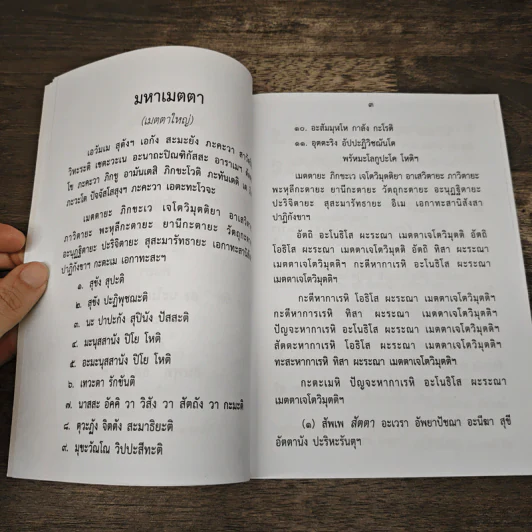 มหาเมตตา
(เมตตาใหญ่)
เอวัมเม สุตังฯ เอกัง สะมะยัง ภะคะวา
วิหะระติ เชตะวะเน อะนาถะปิณฑิกัสสะ อาราเมฯ
โข ภะคะวา ภิกขู อามันเตสิ ภิกขะโวติ ภะทันเตติ เต
ภะวะโต ปัจจัสโสสุงฯ ภะคะวา เอตะทะโวจะ
เมตตายะ ภิกขะเว เจโตวิมุตติยา
ภาวิตายะ พะหุลีกะตายะ ยานีกะตายะ วัตถุกะตายะ
อะนุฏฐิตายะ ปะริจิตายะ สุสะมารัทธายะ เอกาทะสานิสัง
ปาฏิกังขาฯ กะตะเม เอกาทะสะฯ
๑. สุขัง สุปะติ
๒. สุขัง ปะฏิพุชฌะติ
๓. นะ ปาปะกัง สุปินัง ปัสสะติ
๔. มะนุสสานัง ปิโย โหติ
๕. อะมะนุสสานัง ปิโย โหติ
๖. เทวะตา รักขันติ
๗. นาสสะ อัคคิ วา วิสัง วา สัตถัง วา กะมะติ
๘. ตุวะฏัง จิตตัง สะมาธิยะติ
๙. มุขะวัณโณ วิปปะสีทะติ
๓
๑๐. อะสัมมุฬโห กาลัง กะโรติ
๑๑. อุตตะริง อัปปะฏิวิชฌันโต
พรัหมะโลกูปะโค โหติฯ
เมตตายะ ภิกขะเว เจโตวิมุตติยา อาเสวิตายะ ภาวิตายะ
พะหุลีกะตายะ ยานีกะตายะ วัตถุกะตายะ อะนุฏฐิตายะ
ปะริจิตายะ สุสะมารัทธายะ อิเม เอกาทะสานิสังสา
ปาฏิกังขาฯ
อัตถิ อะโนธิโส ผะระณา เมตตาเจโตวิมุตติ อัตถิ
โอธิโส ผะระณา เมตตาเจโตวิมุตติ อัตถิ ทิสา ผะระณา
เมตตาเจโตวิมุตติฯ กะตีหากาเรหิ อะโนธิโส ผะระณา
เมตตาเจโตวิมุตติ
กะตีหากาเรหิ โอธิโส ผะระณา เมตตาเจโตวิมุตติฯ
กะตีหากาเรหิ ทิสา ผะระณา เมตตาเจโตวิมุตติฯ
ปัญจะหากาเรหิ อะโนธิโส ผะระณา เมตตาเจโตวิมุตติฯ
สัตตะหากาเรหิ โอธิโส ผะระณา เมตตาเจโตวิมุตติฯ
ทะสะหากาเรหิ ทิสา ผะระณา เมตตาเจโตวิมุตติฯ
กะตะเมหิ ปัญจะหากาเรหิ อะโนธิโส ผะระณา
เมตตาเจโตวิมุตติฯ
(๑) สัพเพ สัตตา อะเวรา อัพยาปัชฌา อะนีฆา สุขี
อัตตานัง ปะริหะรันตุฯ